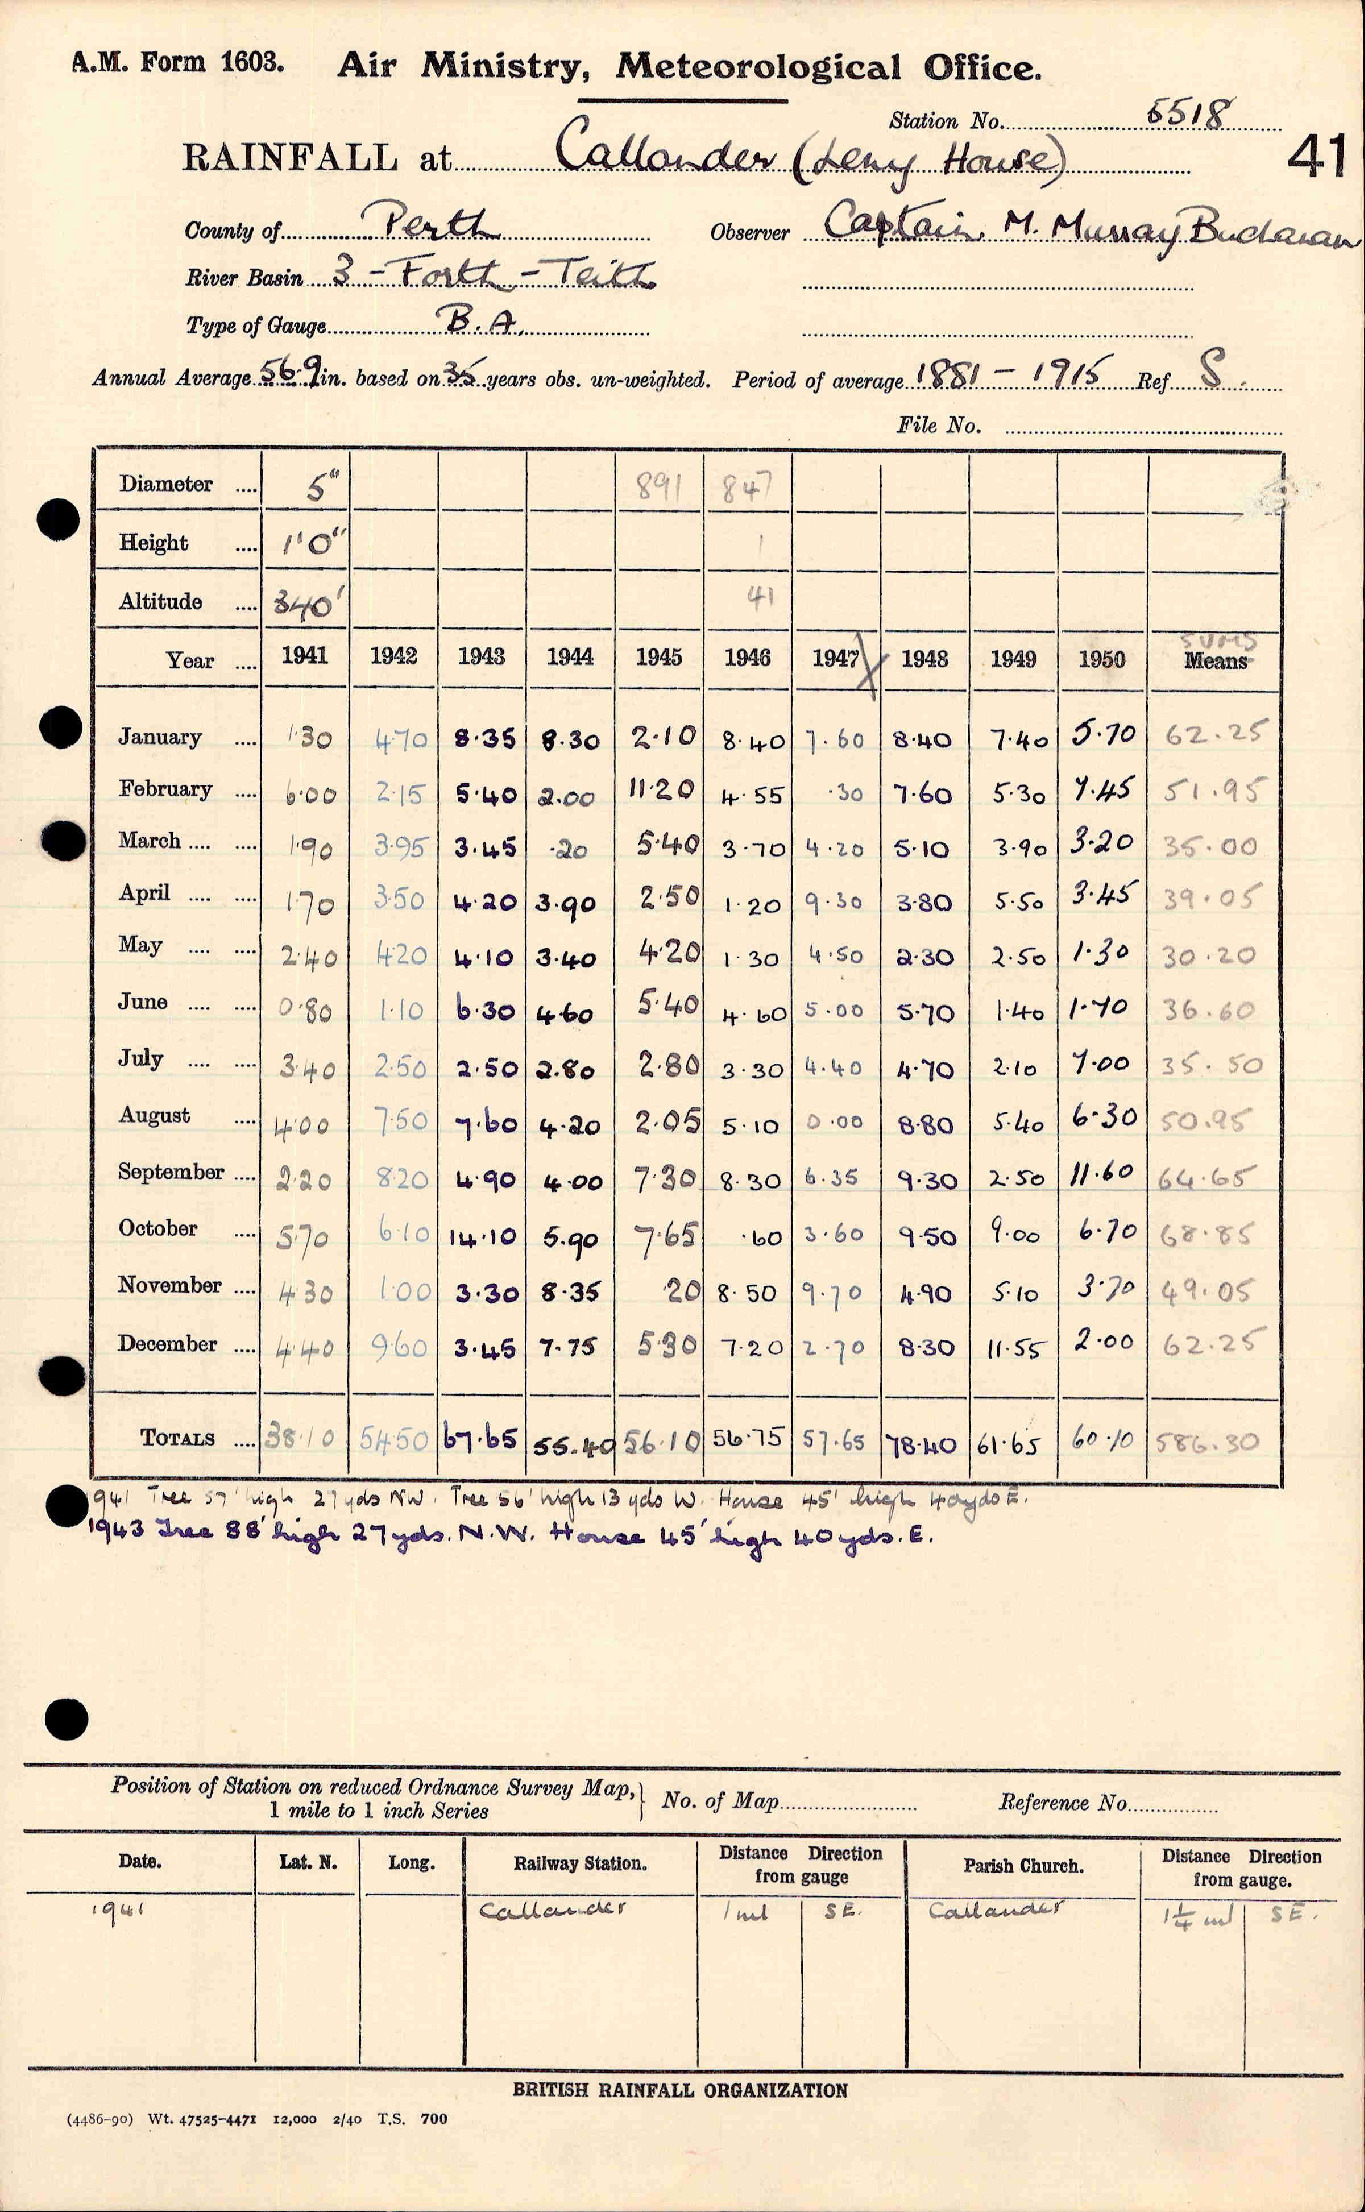 A.M. Form 1603. Air Ministry, Meteorological Office.
Station No. 5518
RAINFALL at Callander (Leny House) 41
County of Perth Observer Captain M. Murray Buchanan
River Basin 3 - Forth - Teith
Type of Gauge B.A.
Annual Average 56.9 in. based on 35 years obs. un-weighted. Period of average 1881 - 1915 Ref. S.
File No.
Diameter .... 5" 891 847
Height .... 1'0" 1
Altitude .... 340' 41
SUMS
Year .... 1941 1942 1943 1944 1945 1946 1947 1948 1949 1950 Means
January .... 1.30 4.70 8.35 8.30 2.10 8.40 7.60 8.40 7.40 5.70 62.25
February .... 6.00 2.15 5.40 2.00 11.20 4.55 .30 7.60 5.30 7.45 51.95
March .... .... 1.90 3.95 3.45 .20 5.40 3.70 4.20 5.10 3.90 3.20 35.00
April .... .... 1.70 3.50 4.20 3.90 2.50 1.20 9.30 3.80 5.50 3.45 39.05
May .... .... 2.40 4.20 4.10 3.40 4.20 1.30 4.50 2.30 2.50 1.30 30.20
June .... .... 0.80 1.10 6.30 4.60 5.40 4.60 5.00 5.70 1.40 1.70 36.60
July .... .... 3.40 2.50 2.50 2.80 2.80 3.30 4.40 4.70 2.10 7.00 35.50
August .... 4.00 7.50 7.60 4.20 2.05 5.10 0.00 8.80 5.40 6.30 50.95
September .... 2.20 8.20 4.90 4.00 7.30 8.30 6.35 9.30 2.50 11.60 64.65
October .... 5.70 6.10 14.10 5.90 7.65 .60 3.60 9.50 9.00 6.70 68.85
November .... 4.30 1.00 3.30 8.35 .20 8.50 9.70 4.90 5.10 3.70 49.05
December .... 4.40 9.60 3.45 7.75 5.30 7.20 2.70 8.30 11.55 2.00 62.25
TOTALS .... 38.10 54.50 67.65 55.40 56.10 56.75 57.65 78.40 61.65 60.10 586.30
1941 Tree 57' high 27 yds NW. Tree 56' high 13 yds W. House 45' high 40yds E.
1943 Tree 88' high 27 yds. N.W. House 45' high 40 yds. E.
Position of Station on reduced Ordnance Survey Map, 1 mile to 1 inch Series } No. of Map Reference No.
Date. Lat. N. Long. Railway Station. Distance Direction from gauge Parish Church. Distance Direction from gauge.
1941 Callander 1 ml SE. Callander 1 1/4 ml SE.
BRITISH RAINFALL ORGANIZATION
(4486-90) Wt. 47525-4471 12,000 2/40 T.S. 700